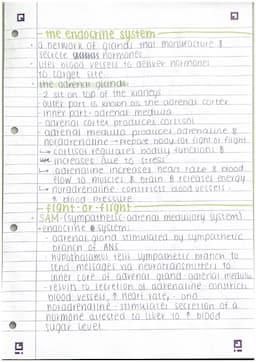 - the endocrine system
• a network of glands that manufacture & secrete hormones
• uses blood vessels to deliver hormones to target site
the adrenal glands:
· 2 sit on top of the kidneys
· outer part is known as the adrenal cortex
· inner part - adrenal medulla
· adrenal cortex produces cortisol
· adrenal medulla produces adrenaline & noradrenaline → prepare body for fight or flight
↳ cortisol regulates bodily functions & increases due to stress
↳ adrenaline increases heart rate & blood flow to muscles & brain & releases energy
↳ noradrenaline constricts blood vessels, ↑ blood pressure
- flight-or-fight
• SAM (sympathetic adrenal medullary system)
- endocrine system:
· adrenal gland stimulated by sympathetic branch of ANS
· hypothalamus tells sympathetic branch to send messages via neurotransmitters to inner core of adrenal gland - adrenal medulla
· results to secretion of adrenaline - constricts blood vessels, ↑ heart rate, and noradrenaline - stimulates secretion of a hormone directed to liver to ↑ blood sugar level